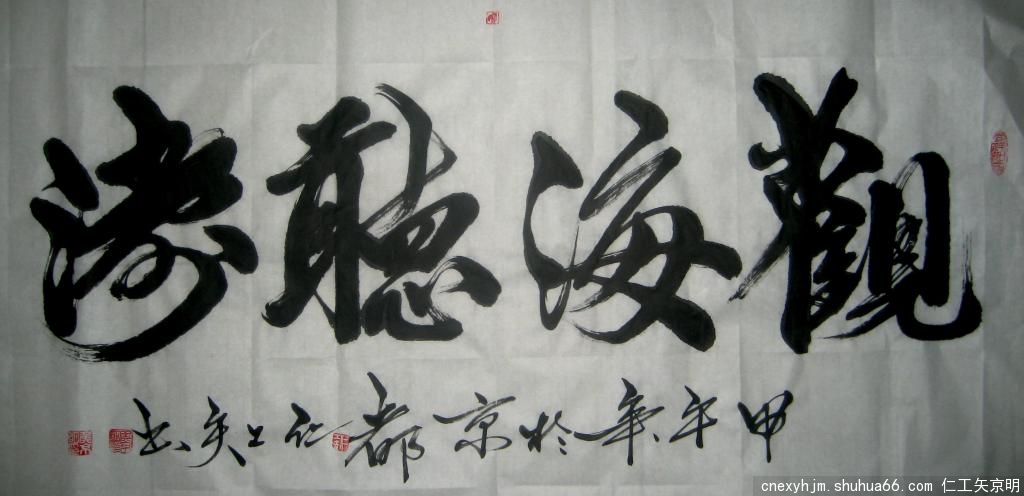 觀海聽濤
甲午年於京都仁工矢書
cnexyhjm.shuhua66.com 仁工矢京明